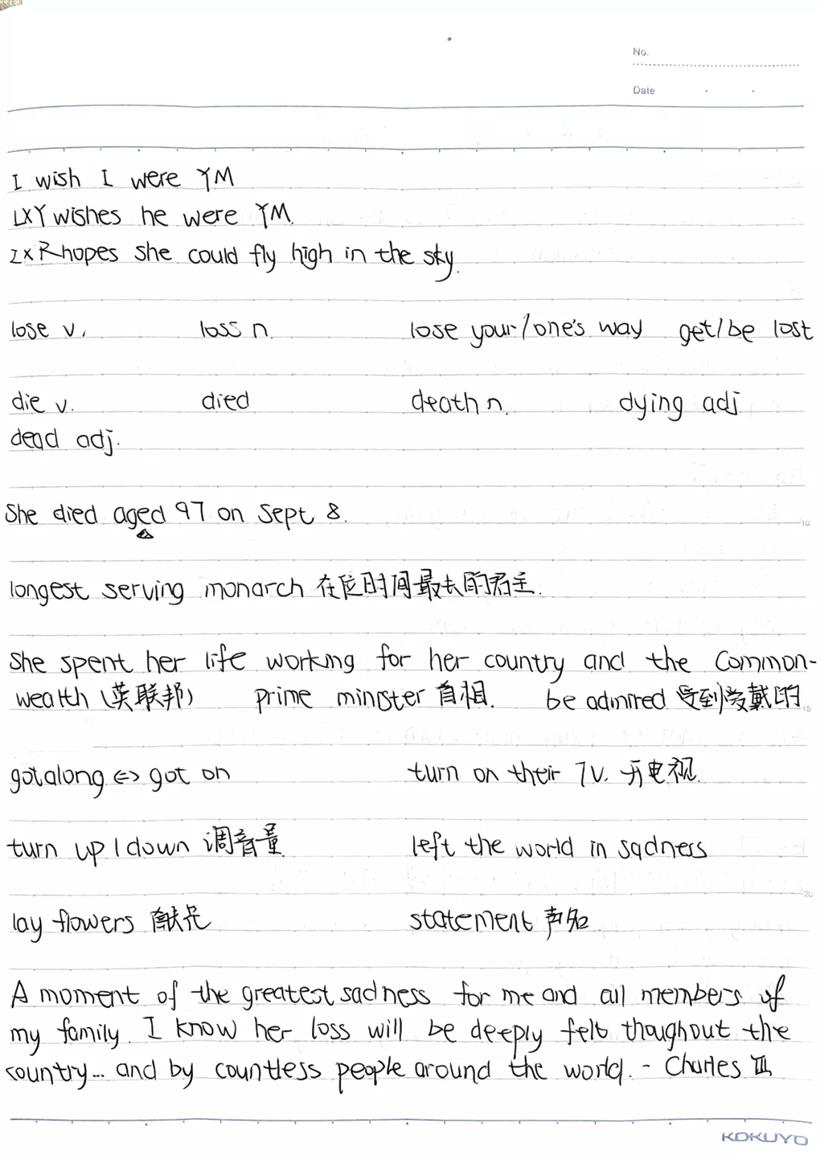 No.
Date
I wish I were YM
LXY wishes he were YM.
ZXR hopes she could fly high in the sky.
lose v. loss n. lose your/one's way get/be lost
die v. died death n. dying adj
dead adj.
She died aged 97 on Sept 8.
longest serving monarch 在位时间最长的君主.
She spent her life working for her country and the Common-
wealth (英联邦) prime minster 首相. be admired 受到爱戴的
got along <=> got on turn on their TV. 开电视.
turn up / down 调音量 left the world in sadness
lay flowers 献花 statement 声明
A moment of the greatest sadness for me and all members of
my family. I know her loss will be deeply felt thoughout the
country... and by countless people around the world. - Charles III
KOKUYO